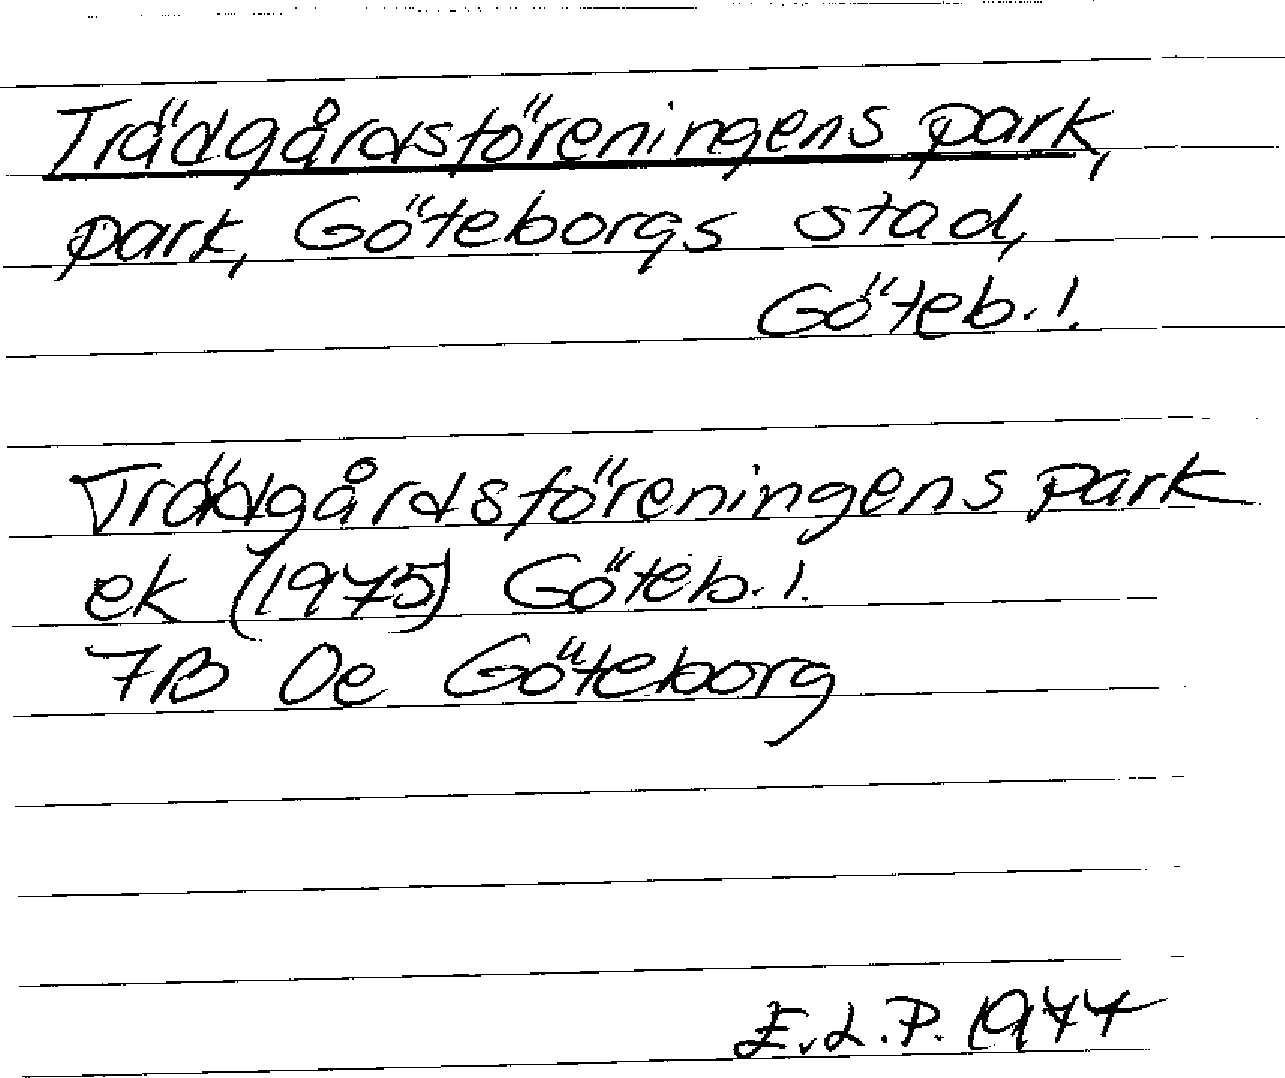 Trädgårdsföreningens park,
park, Göteborgs stad,
Göteb. l.
Trädgårdsföreningens park
ek (1975) Göteb. l.
7B 0e Göteborg
E.L.P. 1977